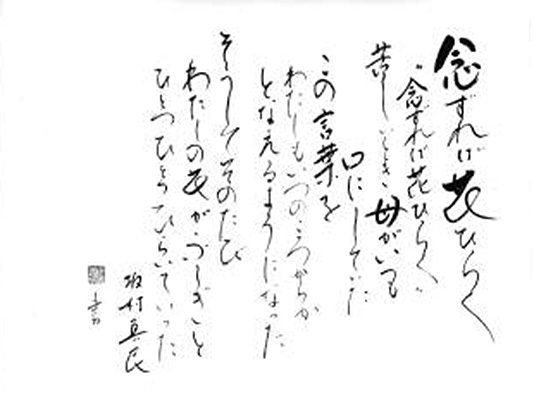 念ずれば花ひらく
念ずれば花ひらく
苦しいとき母がいつも
口にしていた
この言葉を
わたしもいつのころからか
となえるようになった
そうしてそのたび
わたしの花がふしぎと
ひとつひとつひらいていった
坂村真民
書